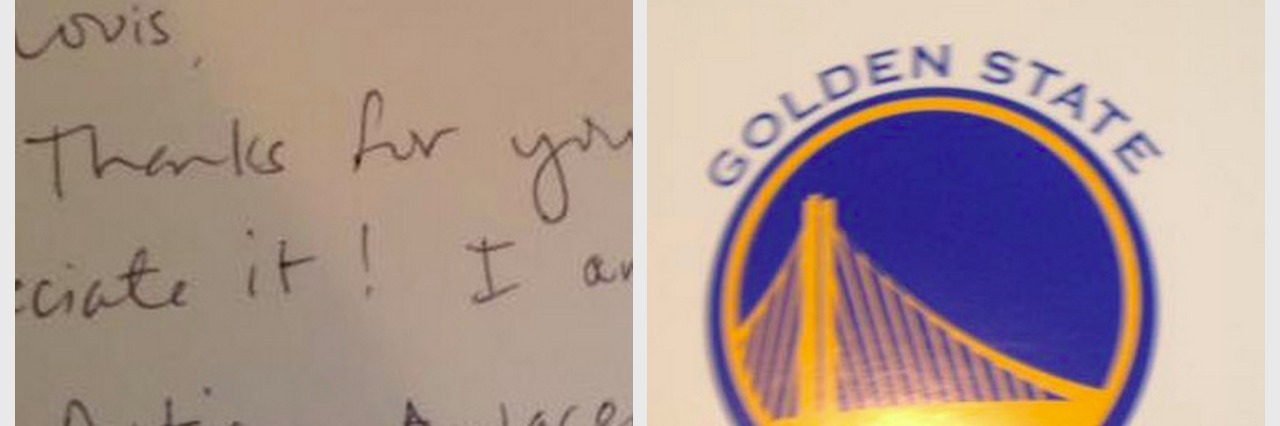 Louis,
Thanks for you
ciate it! I
GOLDEN STATE